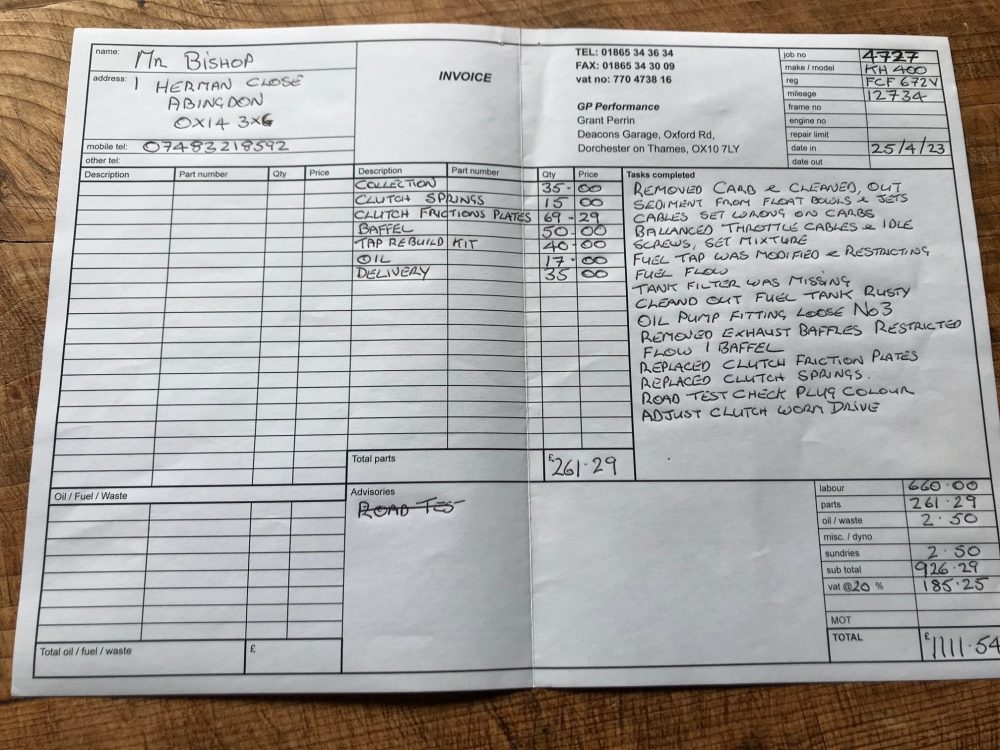 name: Mr Bishop
address: 1 HERMAN CLOSE
ABINGDON
OX14 3XG
mobile tel: 07483218592
other tel:
INVOICE
TEL: 01865 34 36 34
FAX: 01865 34 30 09
vat no: 770 4738 16
GP Performance
Grant Perrin
Deacons Garage, Oxford Rd,
Dorchester on Thames, OX10 7LY
job no 4727
make / model KH 400
reg FCF 672V
mileage 12734
frame no
engine no
repair limit
date in 25/4/23
date out
Description Part number Qty Price Description Part number Qty Price
COLLECTION 35-00
CLUTCH SPRINGS 15 00
CLUTCH FRICTIONS PLATES 69-29
BAFFEL 50-00
TAP REBUILD KIT 40-00
OIL 17-00
DELIVERY 35 00
Total parts £261.29
Tasks completed
REMOVED CARB & CLEANED, OUT
SEDIMENT FROM FLOAT BOWLS & JETS
CABLES SET WRONG ON CARBS
BALLANCED THROTTLE CABLES & IDLE
SCREWS, SET MIXTURE
FUEL TAP WAS MODIFIED & RESTRICTING
FUEL FLOW
TANK FILTER WAS MISSING
CLEAND OUT FUEL TANK RUSTY
OIL PUMP FITTING LOOSE No3
REMOVED EXHAUST BAFFLES RESTRICTED
FLOW 1 BAFFEL
REPLACED CLUTCH FRICTION PLATES
REPLACED CLUTCH SPRINGS.
ROAD TEST CHECK PLUG COLOUR
ADJUST CLUTCH WORM DRIVE
Oil / Fuel / Waste
Total oil / fuel / waste £
Advisories
ROAD TES
labour 660.00
parts 261.29
oil / waste 2.50
misc. / dyno
sundries 2.50
sub total 926.29
vat @20 % 185.25
MOT
TOTAL £1111.54